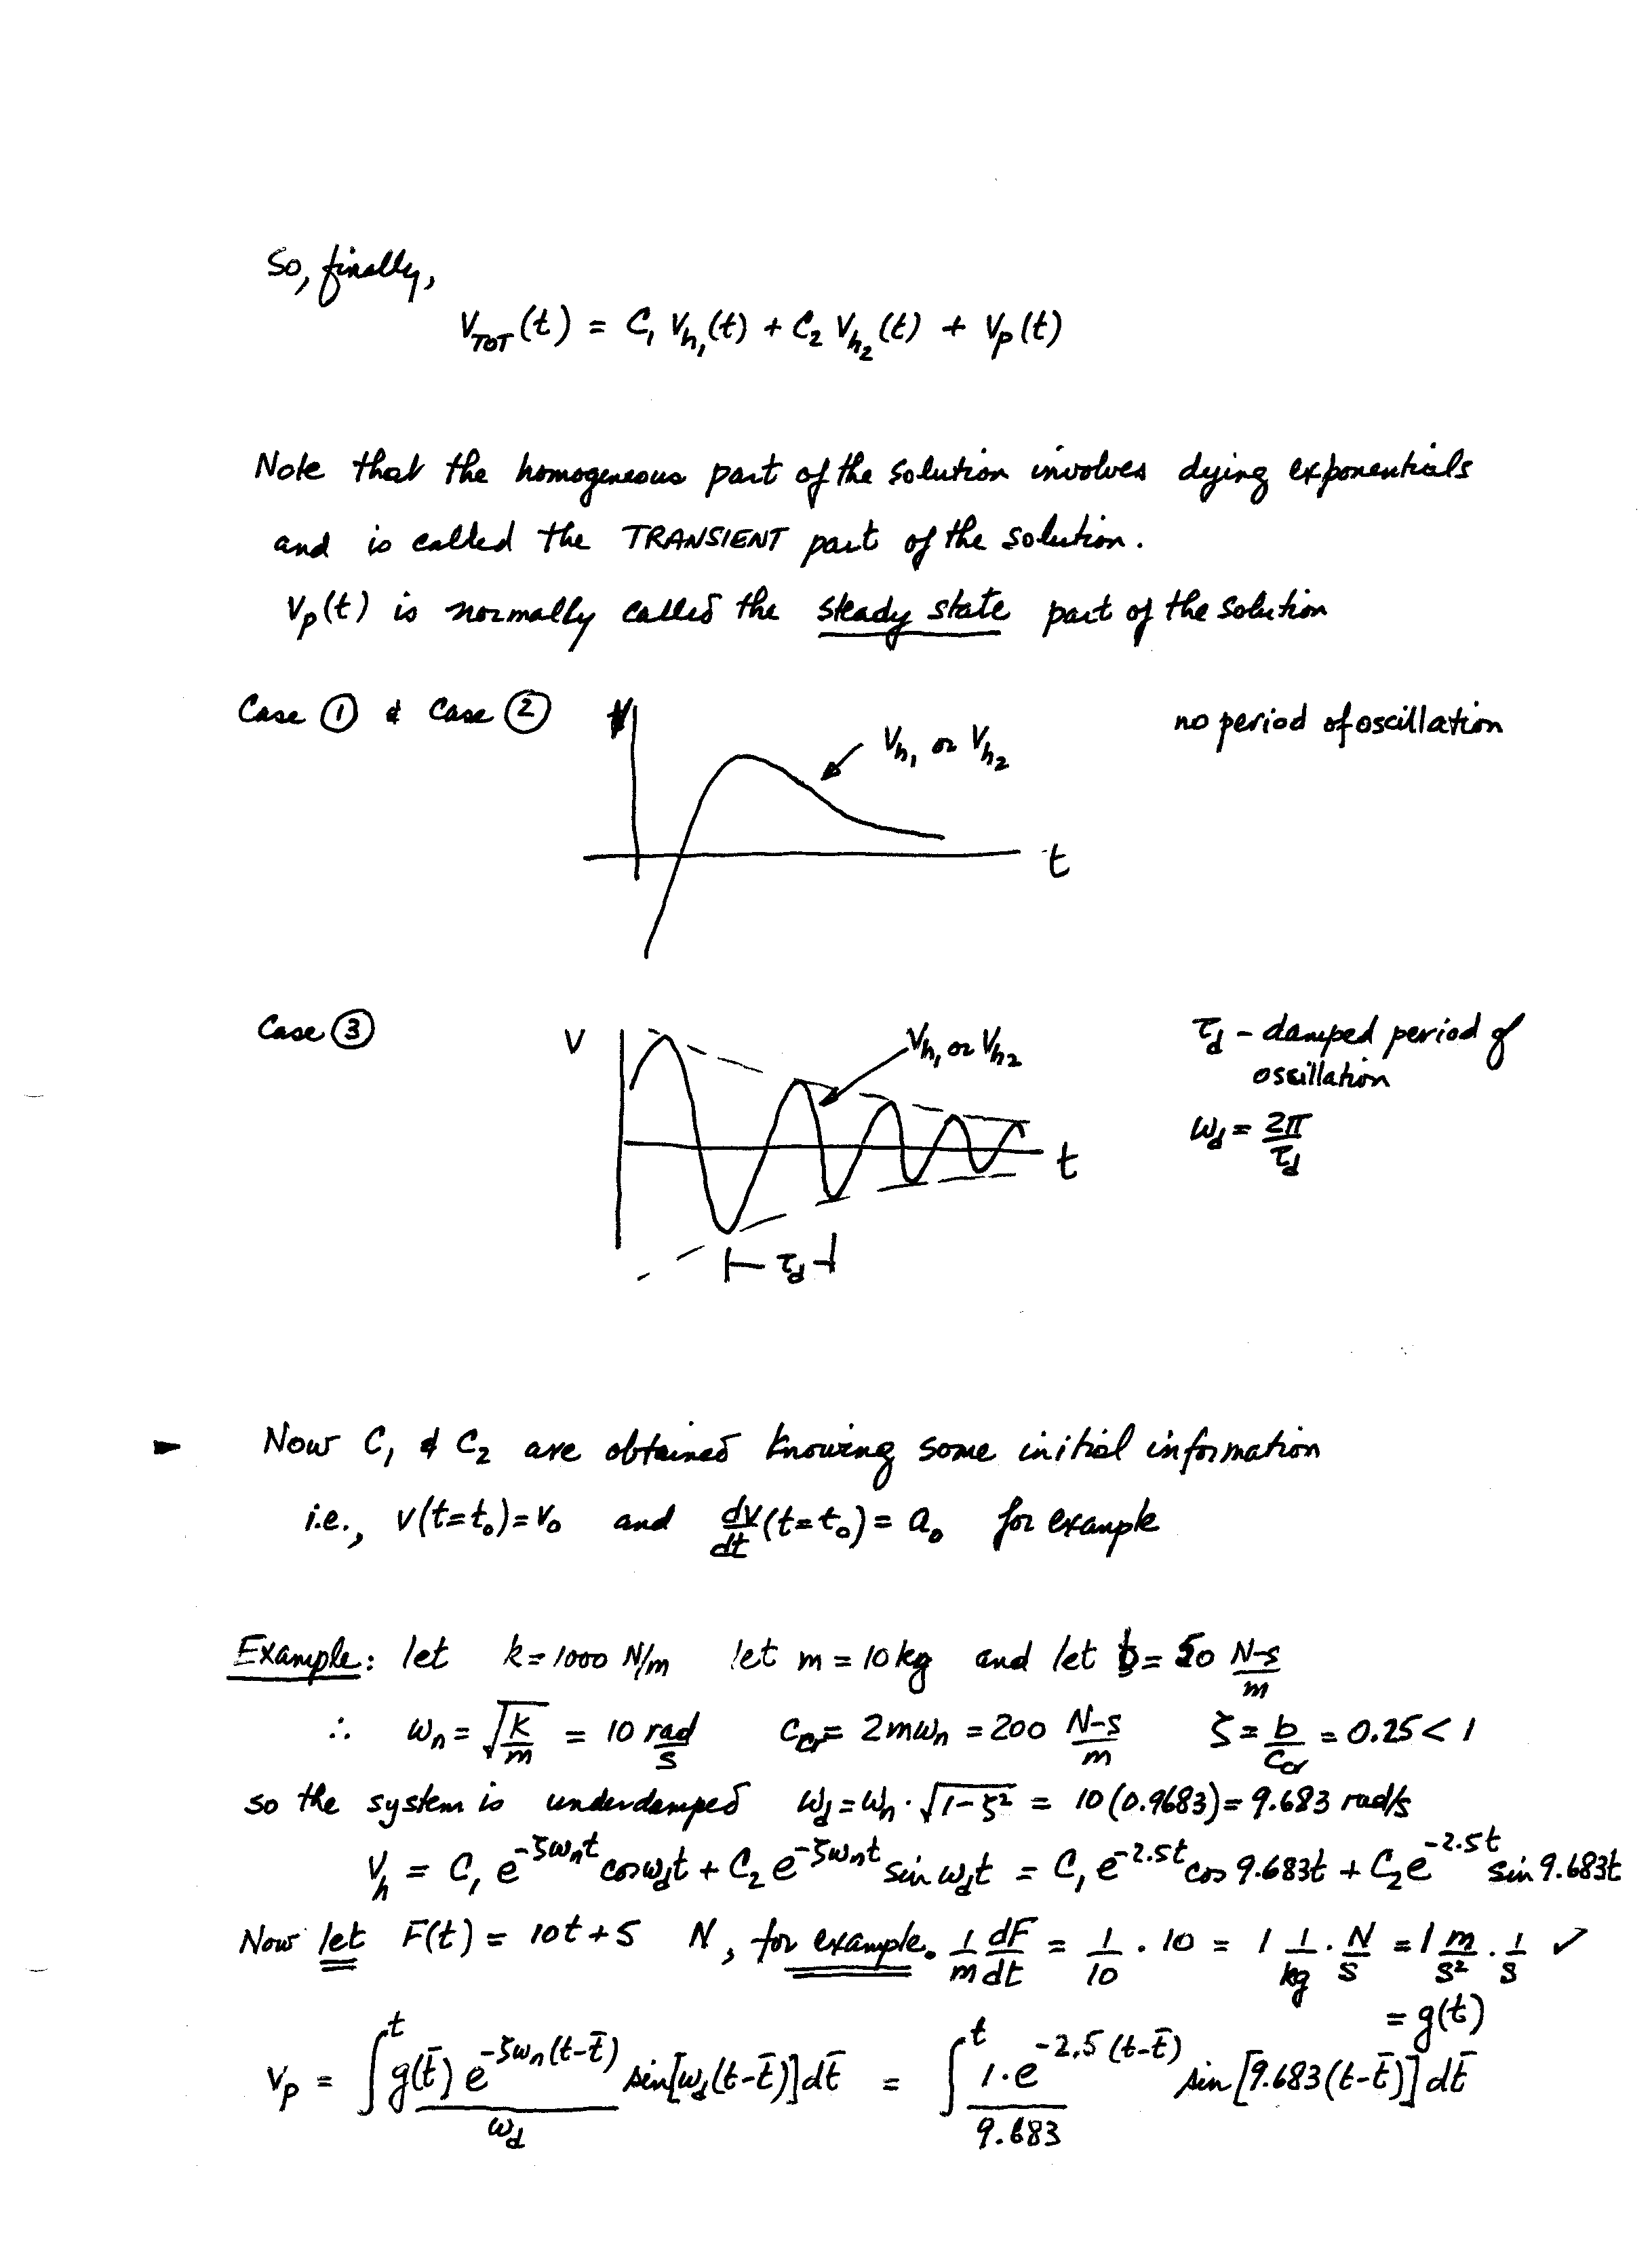 So, finally,
V_TOT(t) = C₁ V_h₁(t) + C₂ V_h₂(t) + V_p(t)
Note that the homogeneous part of the solution involves dying exponentials
and is called the TRANSIENT part of the solution.
V_p(t) is normally called the steady state part of the solution
Case ① & Case ② V V_h₁ or V_h₂ no period of oscillation
t
Case ③ V V_h₁ or V_h₂ τ_d - damped period of
oscillation
ω_d = 2π/τ_d
t
τ_d
Now C₁ & C₂ are obtained knowing some initial information
i.e., v(t=t₀)=v₀ and dv/dt(t=t₀) = a₀ for example
Example: let k=1000 N/m let m = 10 kg and let b = 50 N-s/m
∴ ω_n = √(k/m) = 10 rad/s C_cr = 2mω_n = 200 N-s/m ζ = b/C_cr = 0.25 < 1
so the system is underdamped ω_d = ω_n · √(1-ζ²) = 10(0.9683) = 9.683 rad/s
V_h = C₁ e^(-ζω_n t) cos ω_d t + C₂ e^(-ζω_n t) sin ω_d t = C₁ e^(-2.5t) cos 9.683t + C₂ e^(-2.5t) sin 9.683t
Now let F(t) = 10t + 5 N, for example. 1/m dF/dt = 1/10 · 10 = 1 1/kg · N/s = 1 m/s² · 1/s ✓
= g(t)
V_p = ∫^t g(t̄) e^(-ζω_n(t-t̄))/ω_d sin[ω_d(t-t̄)] dt̄ = ∫^t 1·e^(-2.5(t-t̄))/9.683 sin[9.683(t-t̄)] dt̄